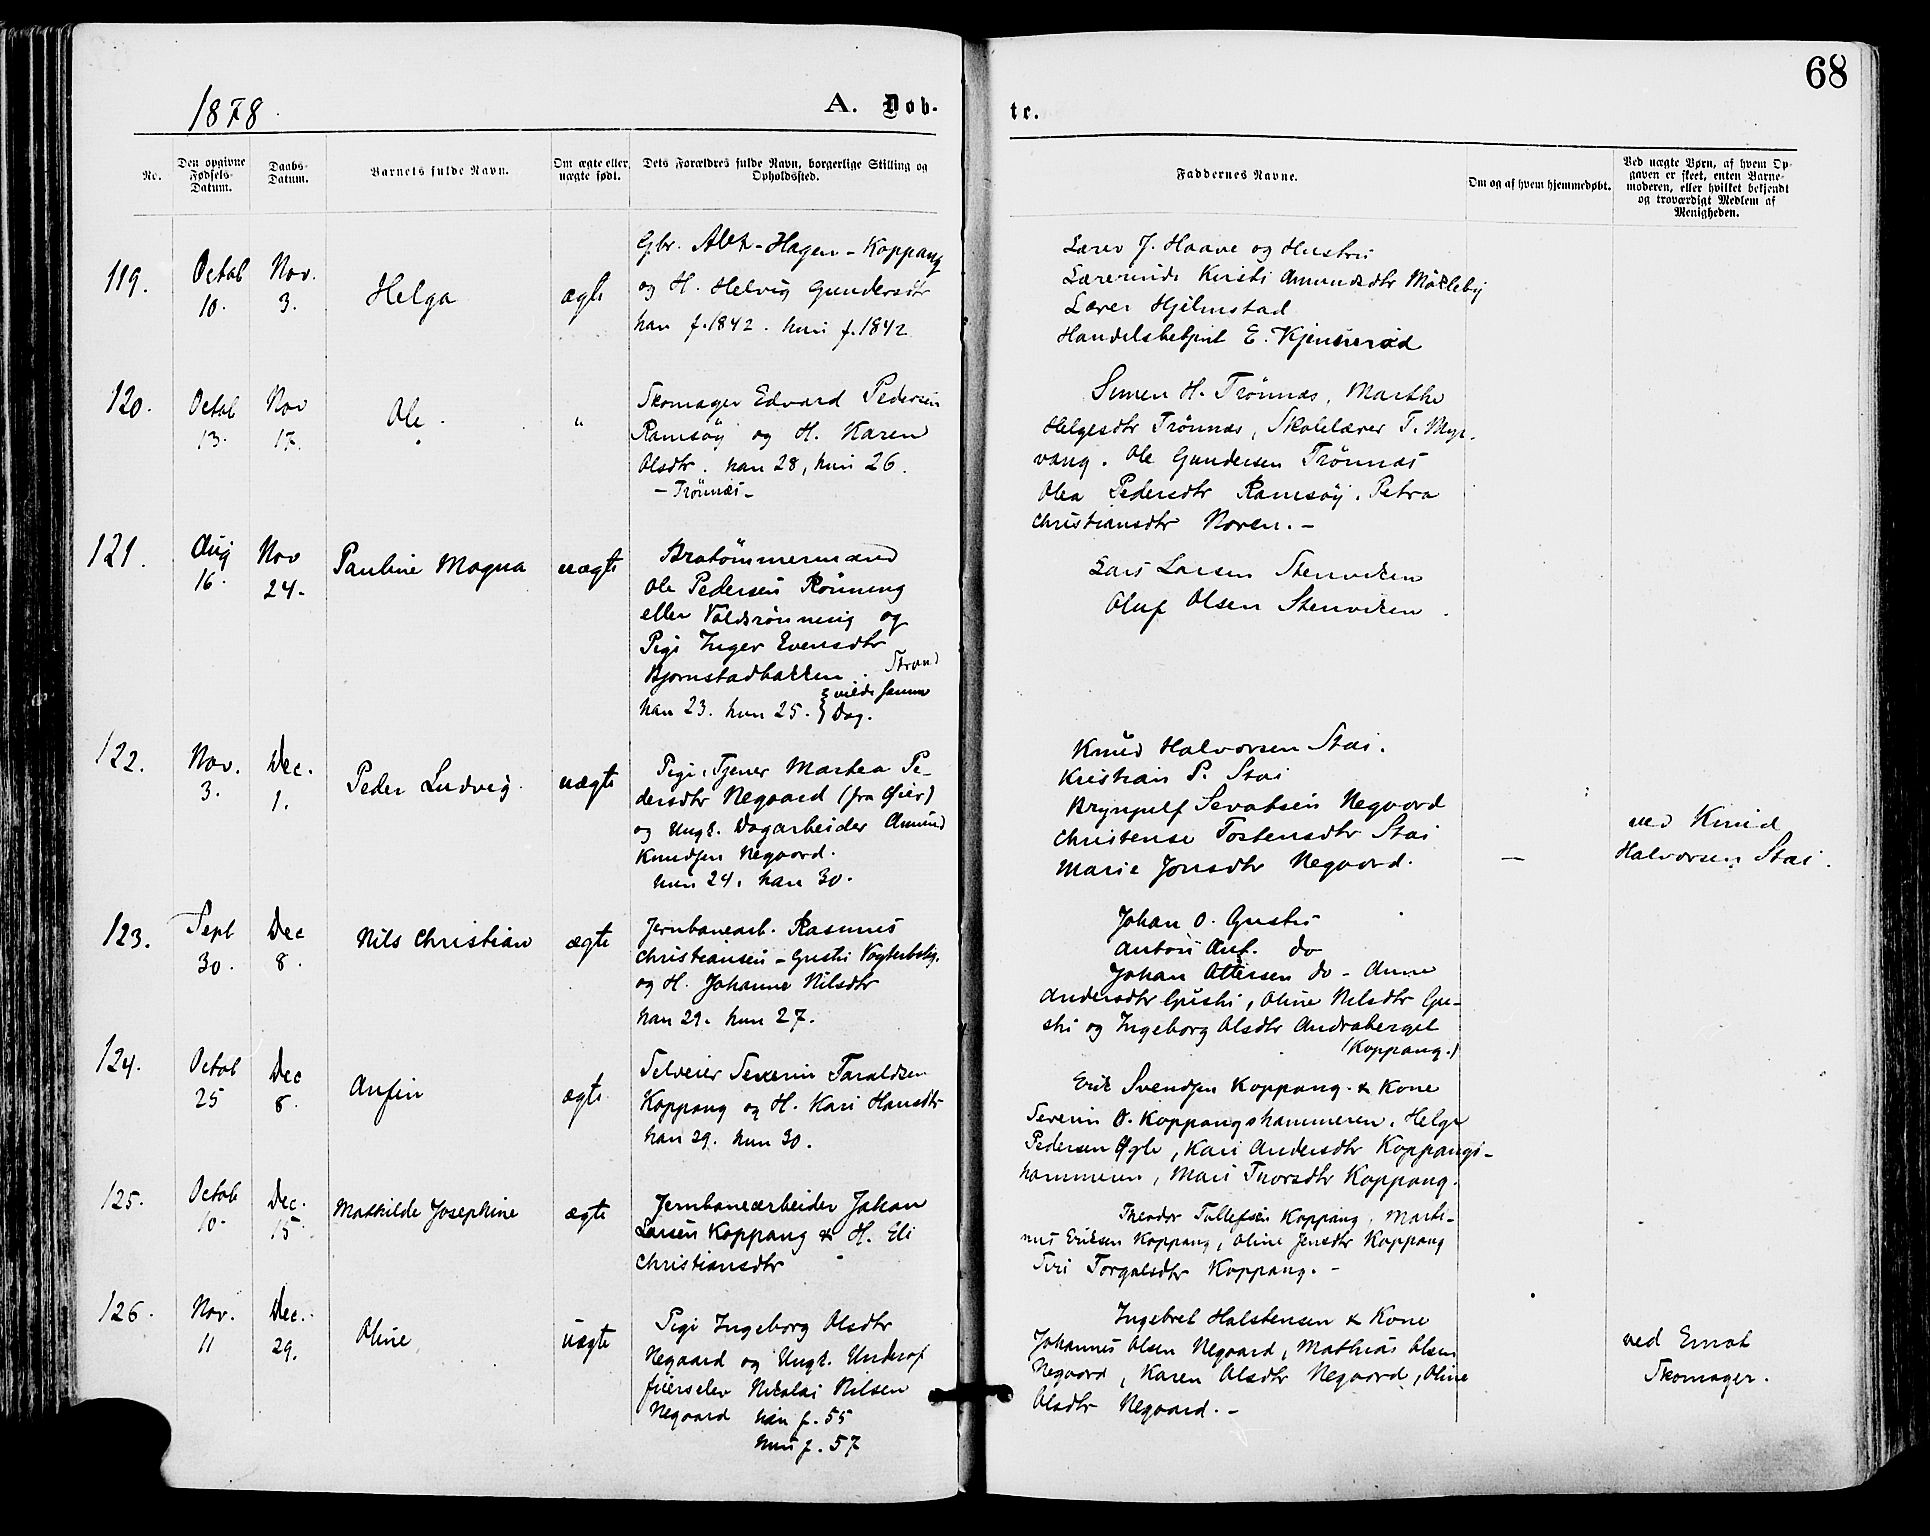 68
1878.
A. Døb-
te.
No.
Den opgivne Fødsels-Datum.
Daabs-Datum.
Barnets fulde Navn.
Om ægte eller uægte født.
Dets Forældres fulde Navn, borgerlige Stilling og Opholdssted.
Faddernes Navne.
Om og af hvem hjemmedøbt.
Ved uægte Børn, af hvem Op-
gaven er skeet, enten Barne-
moderen, eller hvilket bekjendt
og troværdigt Medlem af
Menigheden.
119.
Octob
10.
Nov.
3.
Helga
ægte
Gbr. Hagen - Koppang
og H. Helvig Gundersdtr
han f. 1842. hun f. 1842
Lærer J. Haave og Hustru
Lærerinde Kirsti Amundsdtr Møkleby
Lærer Hjelmstad
E. Kjenserød
120.
Octob
13.
Nov
17.
Ole
"
Skomager Edvard Pedersen
Ramsøy og H. Karen
Olsdtr. han 28, hun 26.
- Trønnæs -
Simen H. Trønnæs, Marthe
Helgesdtr Trønnæs, Skolelærer T. Myr-
vang. Ole Gundersen Trønnæs
Olea Pedersdtr Ramsøy. Petra
Christiansdtr Noren. -
121.
Aug
16.
Nov
24.
Pauline Magna
uægte
Brotømmermand
Ole Pedersen Rønning
eller Voldsrønning og
Pige Inger Evensdtr
Bjørnstadbakken. Strand
han 23. hun 25. } viede samme
Dag.
Lars Larsen Stenviken
Oluf Olsen Stenviken.
122.
Nov.
3.
Dec.
1.
Peder Ludvig.
uægte
Pige, Tjener Marthea Pe-
dersdtr Negaard (fra Øier)
og Ungk. Dagarbeider Amund
Knudsen Negaard.
hun 24. han 30.
Knud Halvorsen Stai.
Kristian P. Stai
Brynjulf Negaard
Christense Tostensdtr Stai
Marie Jonsdtr Negaard.
—
ved Knud
Halvorsen Stai.
123.
Sept
30.
Dec
8.
Nils Christian
ægte
Jernbanearb. Rasmus
Christiansen - Gustu
og H. Johanne Nilsdtr
han 29. hun 27.
Johan O. Gustu
Anton Anf. do
Johan Ottersen do - Anne
Andersdtr Gustu, Oline Nilsdtr Gu-
stu og Ingeborg Olsdtr Andraberget
(Koppang.)
124.
Octob
25
Dec
8.
Anfin
ægte
Selveier Severin Taraldsen
Koppang og H. Kari Hansdtr
han 29. hun 30.
Erik Svendsen Koppang & Kone
Severin O. Koppangshammeren. Helge
Pedersen Øgle, Kari Andersdtr Koppangs-
hammeren, Mari Thorsdtr Koppang.
125.
Octob
10.
Dec.
15
Mathilde Josephine
ægte
Jernbanearbeider Johan
Larsen Koppang & H. Eli
Christiansdtr
Theodor Tollefsen Koppang, Marti-
nus Eriksen Koppang, Oline Jensdtr Koppang
Siri Torgalsdtr Koppang. -
126.
Nov.
11
Dec.
29.
Oline
uægte
Pige Ingeborg Olsdtr
Negaard og Ungk. Underof
ficerselev Nikolai Nilsen
Negaard han f. 55
hun f. 57
Ingebret Halstensen & Kone
Johannes Olsen Negaard, Mathias Olsen
Negaard, Karen Olsdtr Negaard, Oline
Olsdtr Negaard. -
ved
Skomager.